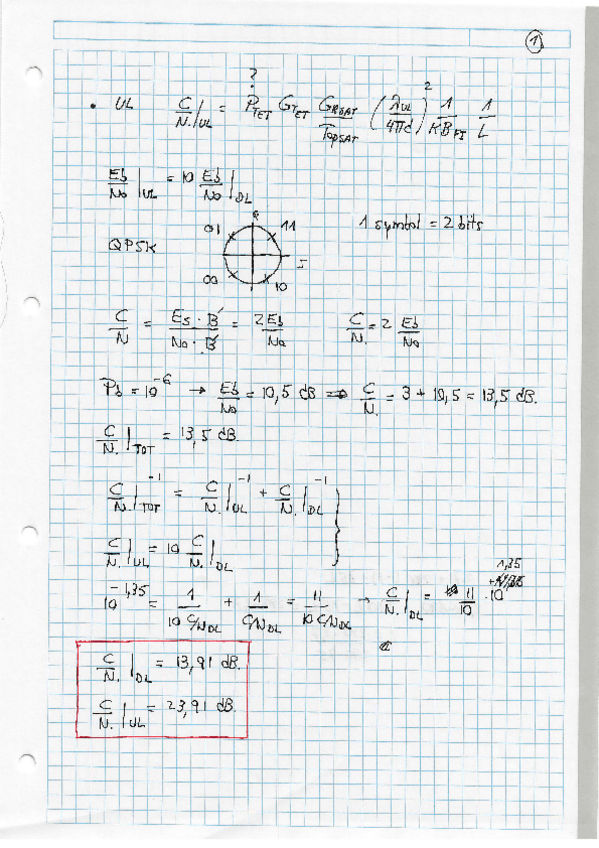 1
?
• UL C/N.|UL = P_TET G_TET G_RSAT/T_opSAT (λ_UL/4πd)^2 1/KB_FI 1/L
Eb/No|UL = 10 Eb/No|DL
QPSK 01 Q 11 I 00 10 1 symbol = 2 bits
C/N = Es · B/No · B = 2Eb/No C/N. = 2 Eb/No
Pb = 10^-6 → Eb/No = 10,5 dB ⇒ C/N. = 3 + 10,5 = 13,5 dB.
C/N.|TOT = 13,5 dB.
C/N.|TOT^-1 = C/N.|UL^-1 + C/N.|DL^-1 }
C/N.|UL = 10 C/N.|DL
10^-1,35 = 1/10 C/N_DL + 1/C/N_DL = 11/10 C/N_DL → C/N.|DL = 11/10 · 10^1,35
C/N.|DL = 13,91 dB.
C/N.|UL = 23,91 dB.